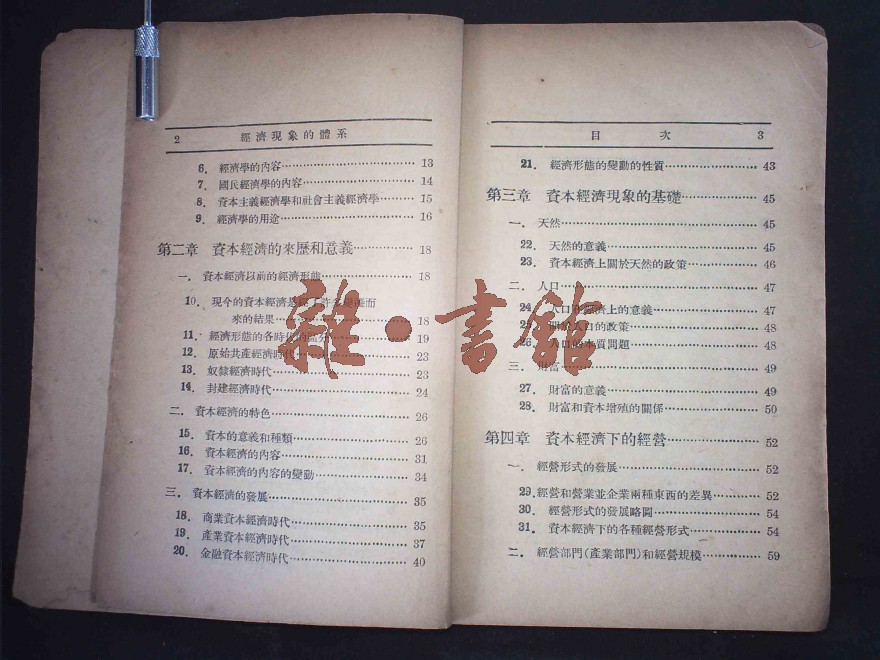 2 經濟現象的體系
6. 經濟學的內容 13
7. 國民經濟學的內容 14
8. 資本主義經濟學和社會主義經濟學 15
9. 經濟學的用途 16
第二章 資本經濟的來歷和意義 18
一. 資本經濟以前的經濟形態 18
10. 現今的資本經濟是經了許多變遷而
來的結果 18
11. 經濟形態的各時代的區分 19
12. 原始共產經濟時代 23
13. 奴隸經濟時代 23
14. 封建經濟時代 24
二. 資本經濟的特色 26
15. 資本的意義和種類 26
16. 資本經濟的內容 31
17. 資本經濟的內容的變動 34
三. 資本經濟的發展 35
18. 商業資本經濟時代 35
19. 產業資本經濟時代 37
20. 金融資本經濟時代 40
目次 3
21. 經濟形態的變動的性質 43
第三章 資本經濟現象的基礎 45
一. 天然 45
22. 天然的意義 45
23. 資本經濟上關於天然的政策 46
二. 人口 47
24. 人口的經濟上的意義 47
25. 關於人口的政策 48
26. 人口的本質問題 48
三. 財富 49
27. 財富的意義 49
28. 財富和資本增殖的關係 50
第四章 資本經濟下的經營 52
一. 經營形式的發展 52
29. 經營和營業並企業兩種東西的差異 52
30. 經營形式的發展略圖 54
31. 資本經濟下的各種經營形式 54
二. 經營部門(產業部門)和經營規模 59
雜·書館